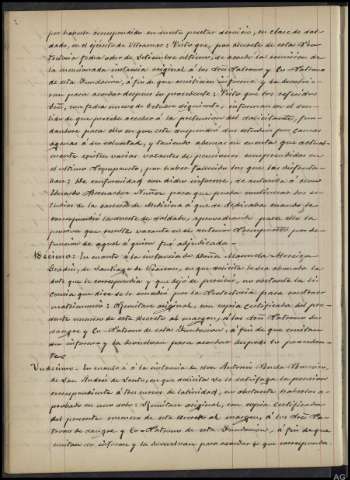 por haberle correspondido en suerte prestar servicio, en clase de sol-
dado, en el ejército de Ultramar: Visto que, por decreto de esta Pro-
tectoría fecha      de Setiembre último, se acordó la remisión de
la mencionada instancia original á los dos Patronos y Co-Patrono
de esta Fundación, á fin de que emitieran informe y la devolvie-
ran para acordar despues lo procedente: Visto que los referidos
      con fecha nueve de Octubre siguiente, informaron en sen-
tido de que procedía acceder á la pretension del solicitante, fun-
dandose para ello en que este suspendió sus estudios por causas
agenas á su voluntad, y teniendo ademas en cuenta que actual-
mente existen varias vacantes de pensiones comprendidas en
el último llamamiento por haber fallecido los que las disfruta-
ban: De conformidad con dicho informe, se autoriza á Don
Eduardo             Núñez para que pueda continuar los es-
tudios de la carrera de Medicina á que se dedicaba cuando le
correspondió la suerte de soldado, aprovechando para ello la
pension que resulte vacante en el anterior llamamiento por de-
función de aquel á quien fué adjudicada.
Decimo: En cuanto á la instancia de Doña Manuela
      , de Santiago de              , en que solicita le sea abonada la
dote que le correspondia y que dejó de percibir, no obstante la li-
cencia que dice se le concedió por la Protectoría para contraer
matrimonio: Remítase original, con copia certificada del pre-
sente número de este decreto al margen, á los dos Patronos de
sangre y Co-Patrono de esta Fundación, á fin de que emitan
su informe y la devuelvan para acordar despues lo proceden-
te.
Undecimo: En cuanto á la instancia de Don Antonio
de San Andrés de      , en que solicita se le satisfaga la pension
correspondiente á tres cursos de latinidad, no obstante haberlos a-
probado en uno solo: Remítase original, con copia certificada
del presente número de este decreto al margen, á los dos Pa-
tronos de sangre y Co-Patrono de esta Fundación, á fin de que
emitan su informe y la devuelvan para acordar lo que corresponda
AG